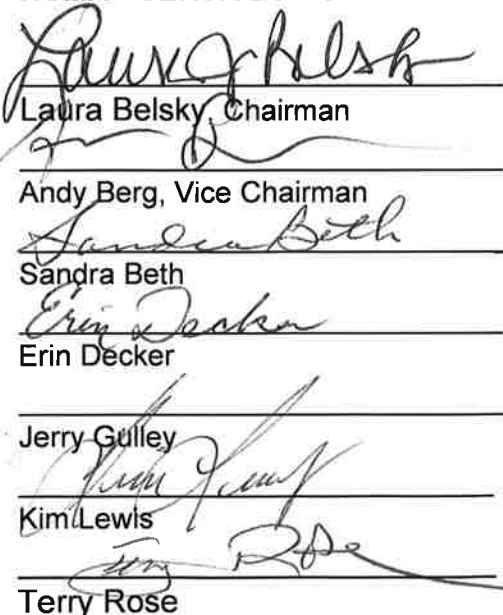 Laura J Belsky
Laura Belsky, Chairman
Andy Berg, Vice Chairman
Sandra Beth
Sandra Beth
Erin Decker
Erin Decker
Jerry Gulley
Kim Lewis
Kim Lewis
Terry Rose
Terry Rose